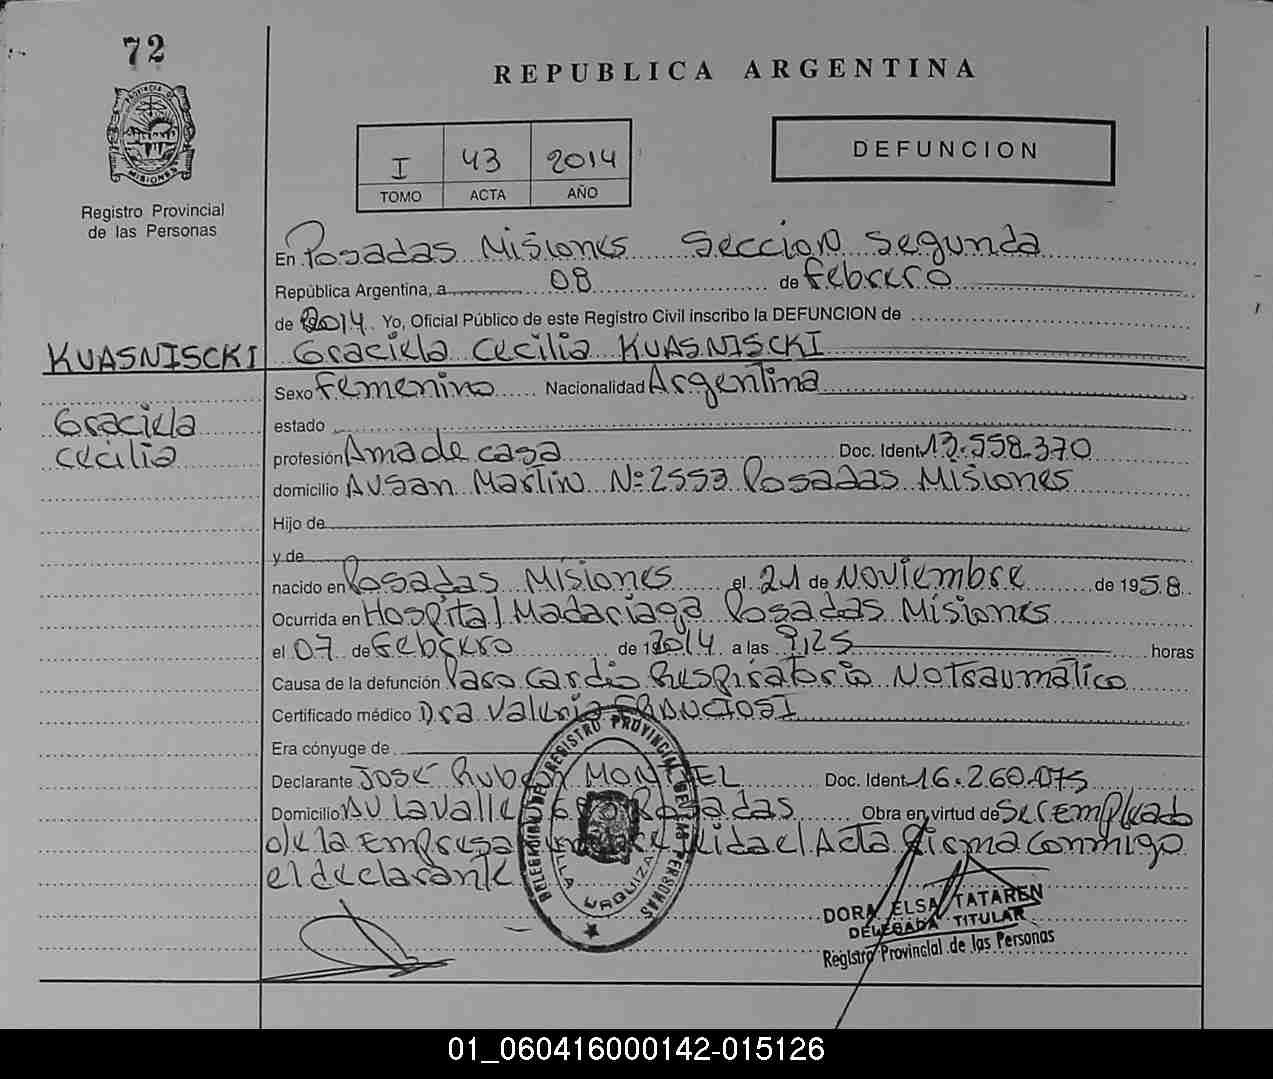 72
PROVINCIA DE
MISIONES
Registro Provincial
de las Personas
REPUBLICA ARGENTINA
I 43 2014
TOMO ACTA AÑO
DEFUNCION
En Posadas Misiones Seccion Segunda
República Argentina, a 08 de Febrero
de 2014 Yo, Oficial Público de este Registro Civil inscribo la DEFUNCION de
KUASNISCKI Graciela Cecilia KUASNISCKI
Sexo Femenino Nacionalidad Argentina
Graciela estado
Cecilia profesión Ama de casa Doc. Ident. 13.558.370
domicilio AV San Martin Nº 2553 Posadas Misiones
Hijo de
y de
nacido en Posadas Misiones el 21 de Noviembre de 1958
Ocurrida en Hospital Madariaga Posadas Misiones
el 07 de Febrero de 2014 a las 9,25 horas
Causa de la defunción Paro Cardio Respiratorio No Traumatico
Certificado médico Dra Valeria FRANCIOSI
Era cónyuge de
Declarante José Ruben MONTIEL Doc. Ident. 16.260.075
Domicilio AV Lavalle Posadas Obra en virtud de Ser Empleado
de la Empresa Leida el Acta Firma Conmigo
el declarante
DELEGACION DEL REGISTRO PROVINCIAL DE LAS PERSONAS
VILLA URQUIZA
DORA ELSA TATAREN
DELEGADA TITULAR
Registro Provincial de las Personas
01_060416000142-015126